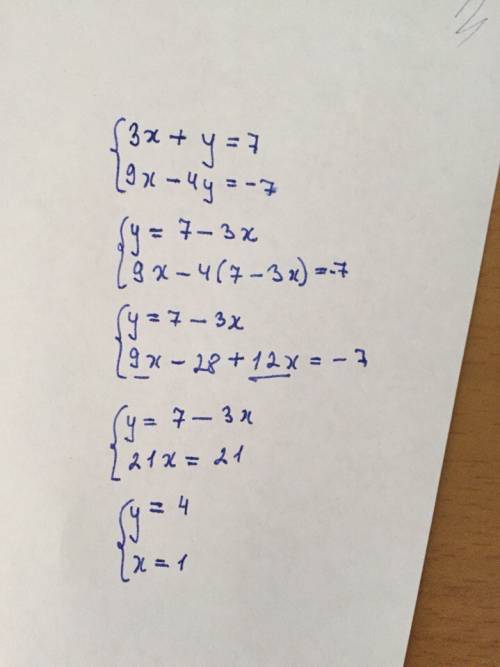 3x + y = 7
9x - 4y = -7
y = 7 - 3x
9x - 4(7 - 3x) = -7
y = 7 - 3x
9x - 28 + 12x = -7
y = 7 - 3x
21x = 21
y = 4
x = 1